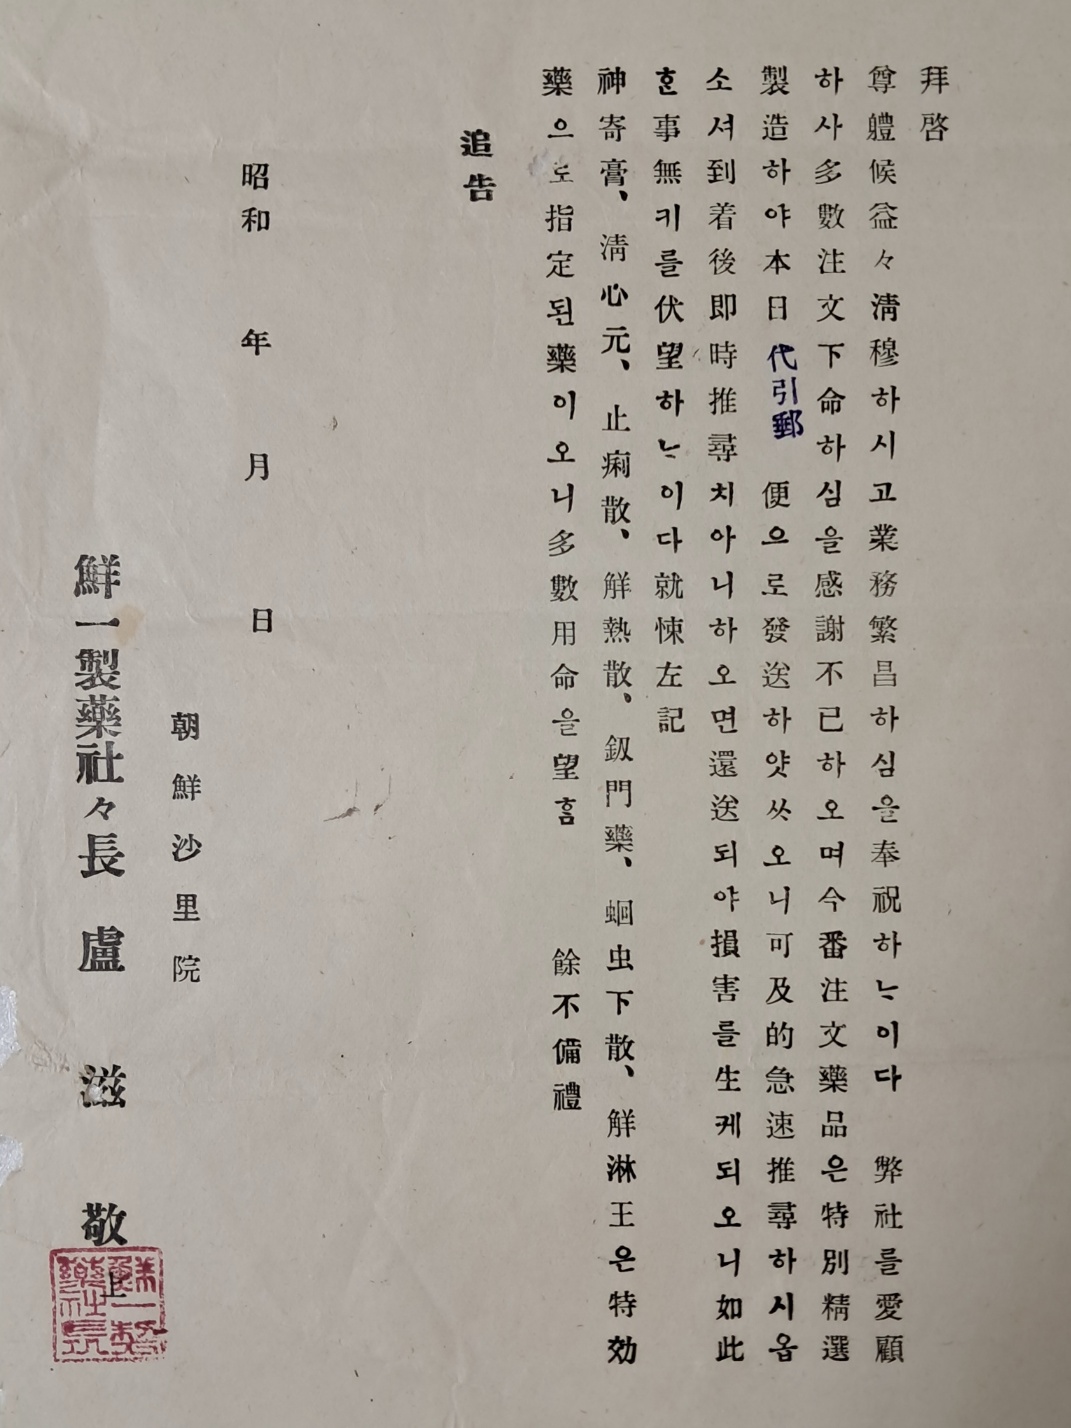 拜啓
尊軆候益々淸穆하시고業務繁昌하심을奉祝하ᄂᆞ이다 弊社를愛顧
하사多數注文下命하심을感謝不已하오며今番注文藥品은特別精選
製造하야本日代引郵便으로發送하얏ᄊᆞ오니可及的急速推尋하시옵
소셔到着後即時推尋치아니하오면還送되야損害를生케되오니如此
ᄒᆞᆫ事無키를伏望하ᄂᆞ이다就悚左記
神寄膏、淸心元、止痢散、解熱散、釼門藥、蛔虫下散、解淋王은特効
藥으로指定된藥이오니多數用命을望홈 餘不備禮
追告
昭和 年 月 日
朝鮮沙里院
鮮一製藥社々長 盧滋敬 上
鮮一製藥社長